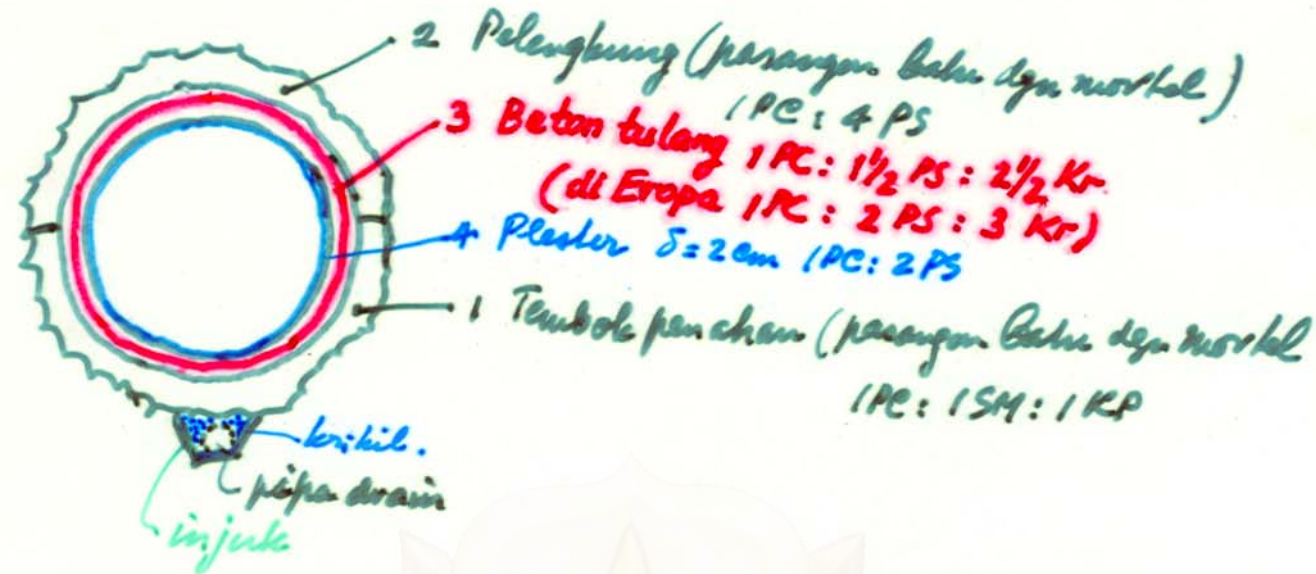 2 Pelengkung (pasangan batu dgn mortel)
1 PC : 4 PS
3 Beton tulang 1 PC : 1½ PS : 2½ Kr
(di Eropa 1 PC : 2 PS : 3 Kr)
4 Plester δ = 2 cm 1 PC : 2 PS
1 Tembok penahan (pasangan batu dgn mortel
1 PC : 1 SM : 1 KP
krikil.
pipa drain
injuk